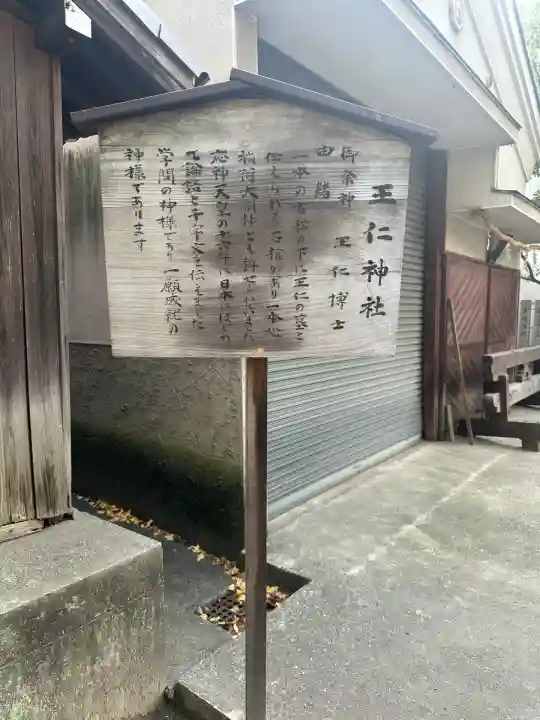 王仁神社
御祭神 王仁博士
由緒
一本の古松の下に王仁の墓と
伝えられる石標があり一本松
稲荷大明神とも称せられました
応神天皇の十六年に日本にはじめ
て論語と千字文を伝えました
学問の神様であり一願成就の
神様であります